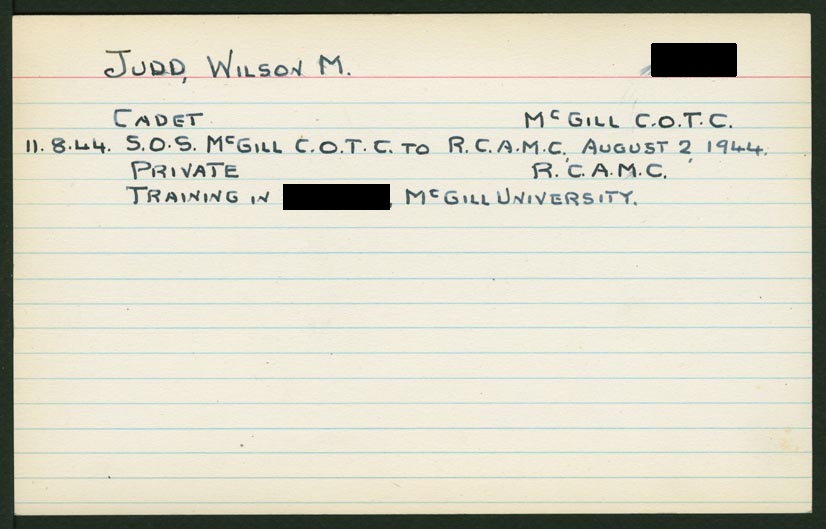 JUDD, WILSON M.
CADET McGILL C.O.T.C.
11.8.44. S.O.S. McGILL C.O.T.C. TO R.C.A.M.C, AUGUST 2, 1944.
PRIVATE R.C.A.M.C.
TRAINING IN , McGILL UNIVERSITY.